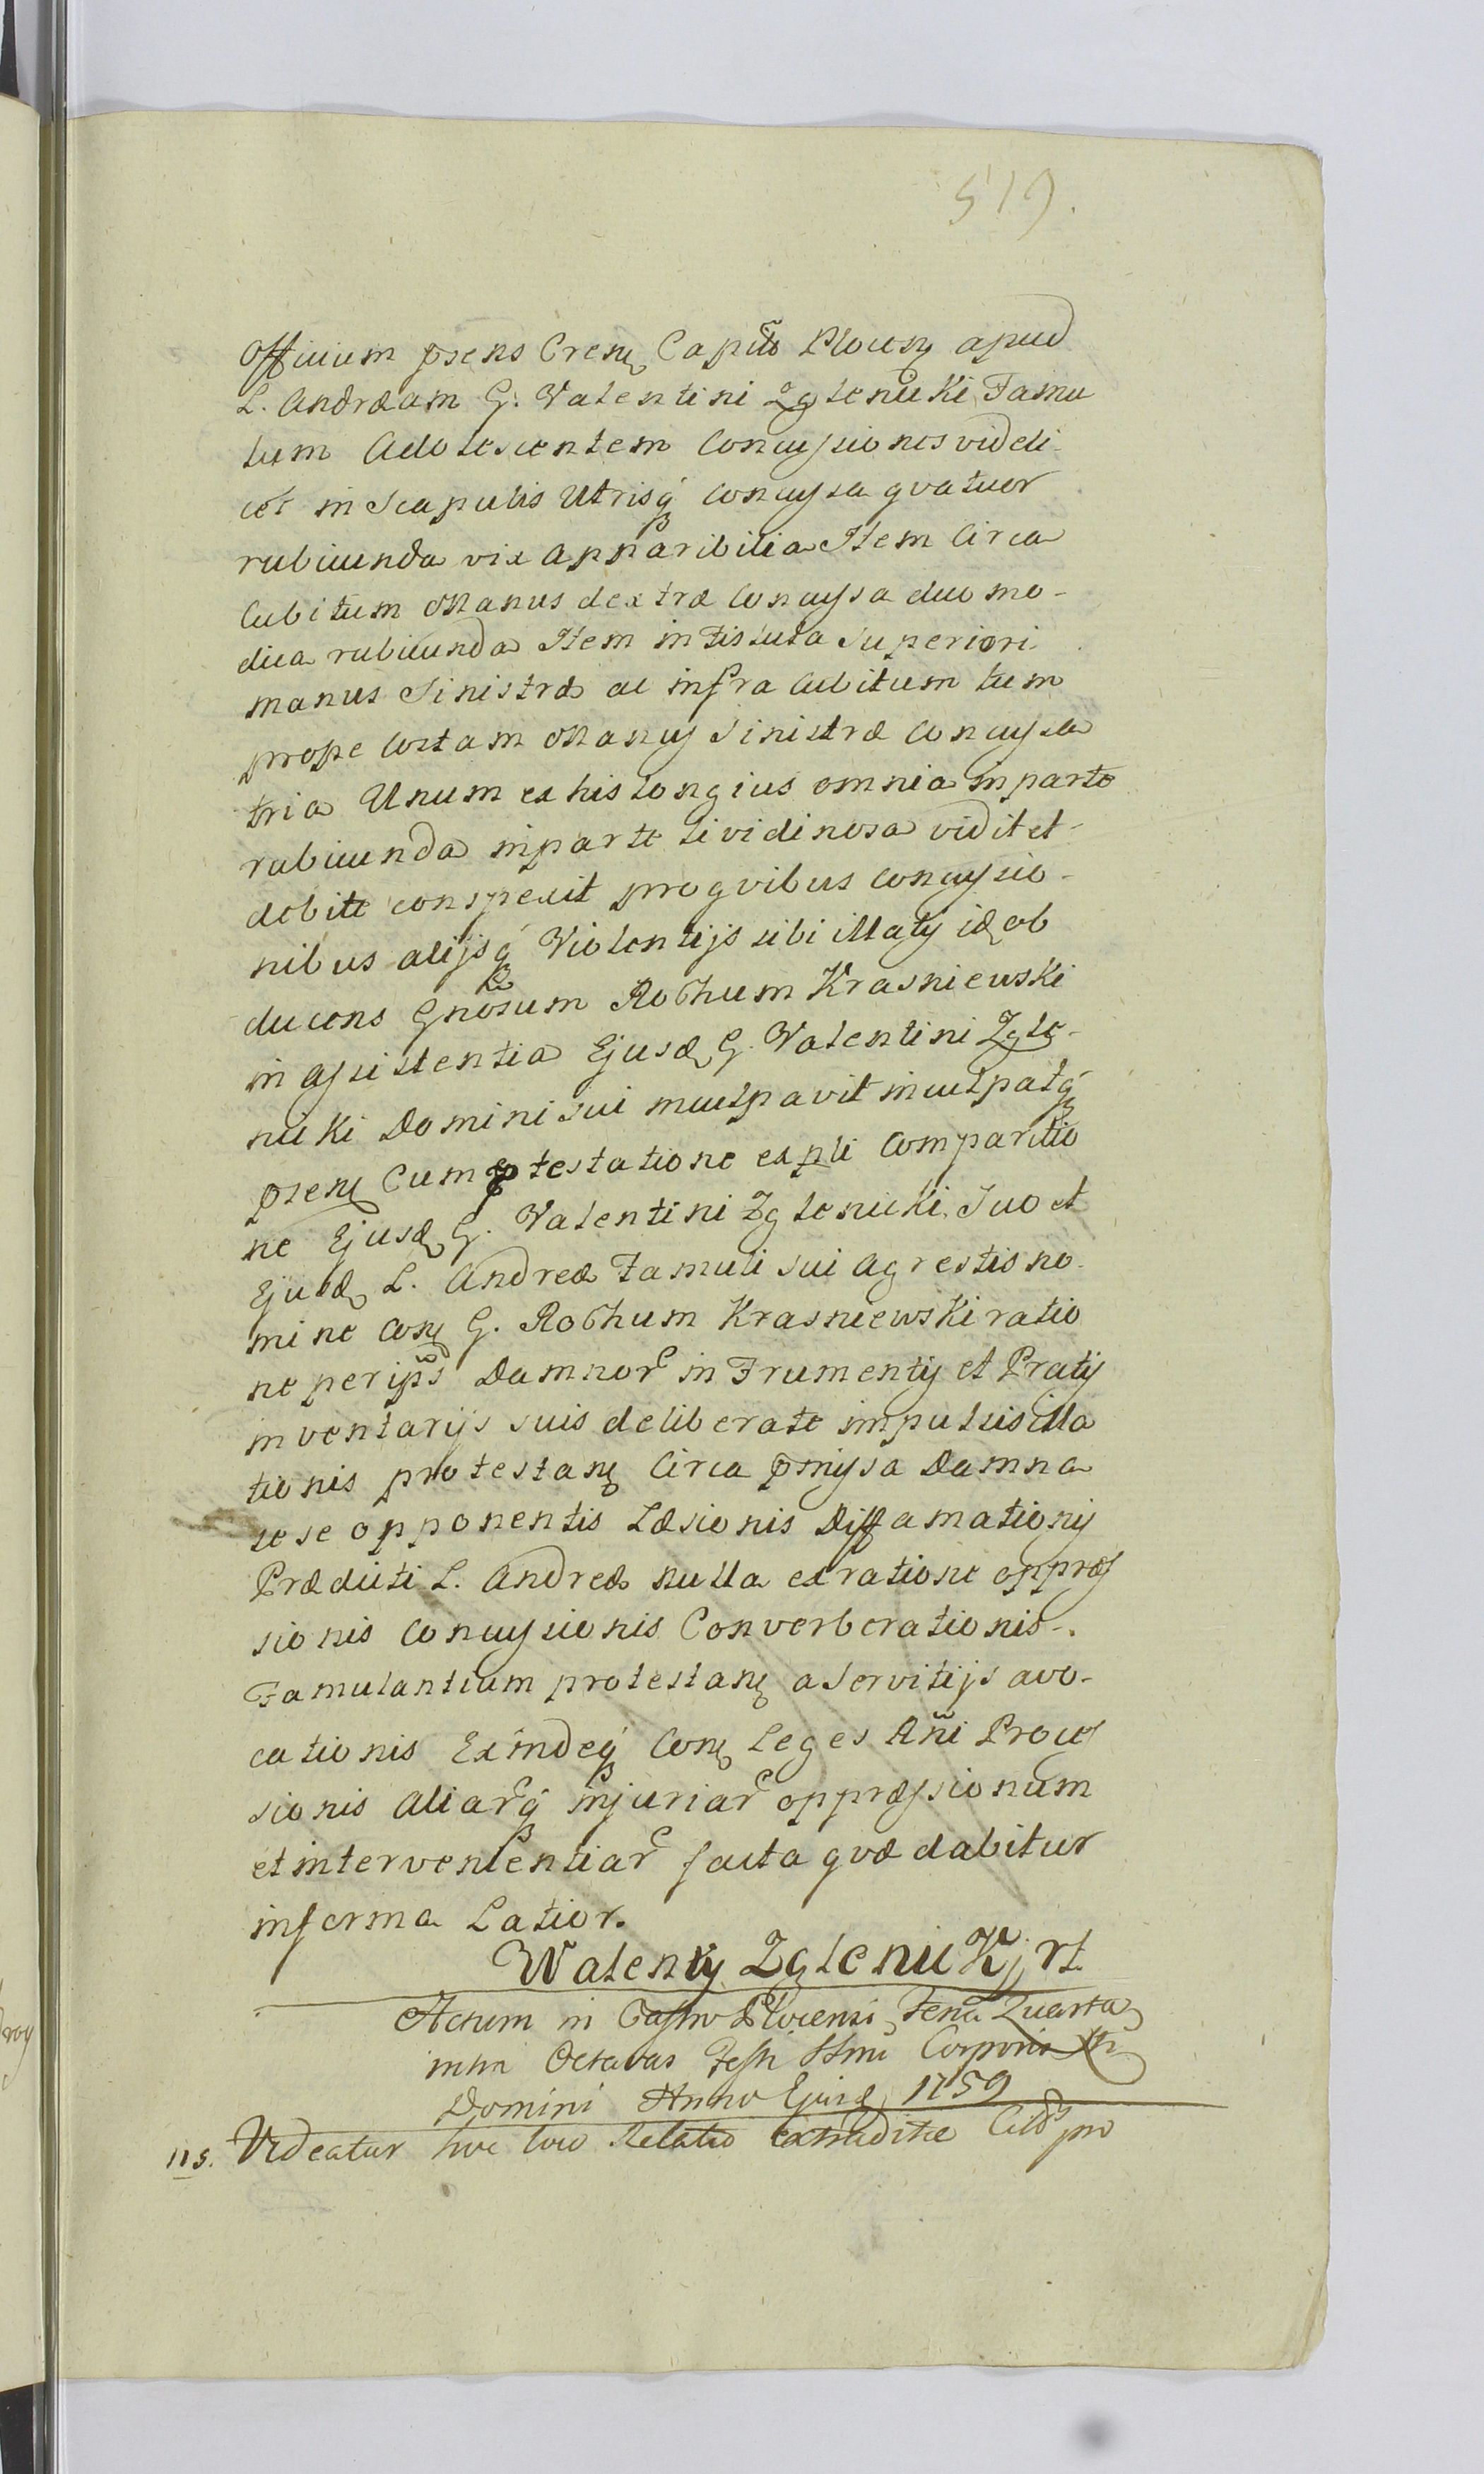 519.
Officium psens Crense Capitle Plocense apud
L. Andræam G. Valentini Zglenicki Famu
lum Adolescentem Concussiones videli-
cet in Scapulis Utrisq concussa qvatuor
rubicunda vix apparibilia Item Circa
Cubitum Manus dextræ Concussa duo mo-
dica rubicunda Item in superiori
manus Sinistræ ac infra Cubitum tum
prope Costam Manus Sinistræ Concussa
tria Unum ex his longius omnia in parte
rubicunda in parte lividinosa vidit et
debite conspexit pro qvibus concussio-
nibus alijsq Violentijs sibi illatis id ob
ducens Gnosum Rochum Krasniewski
in assistentia Ejusd G. Valentini Zgle-
nicki Domini sui inculpavit inculpatq
psens Cum ptestatione ex pti Comparitio
ne Ejusd G. Valentini Zglenicki Suo et
Ejusd L. Andreæ Famuli sui agrestis no-
mine Cons G. Rochum Krasniewski ratio
ne per ipss Damnor in Frumentis et Pratis
inventarijs suis deliberate impulsis illa
tionis protestans Circa pmissa Damna
sese opponentis Læsionis Diffamationis
Prædicti L. Andreæ nulla ex ratione oppres
sionis Concussionis Converberationis-.
Famulantium protestans a Servitijs avo-
cationis Exindeq Cons Leges Ani Proces
sionis aliarq injuriar oppræssionum
et intervenientiar facta qvæ dabitur
in forma Latior.
Walenty Zglenicki rt
Actum in Castro Plocensi Feria Quarta
intra Octavas Festi Ssmi Corporis Xti
Domini Anno Ejusd 1759
115. Videatur hoc loco Relatio extraditæ Citis pro